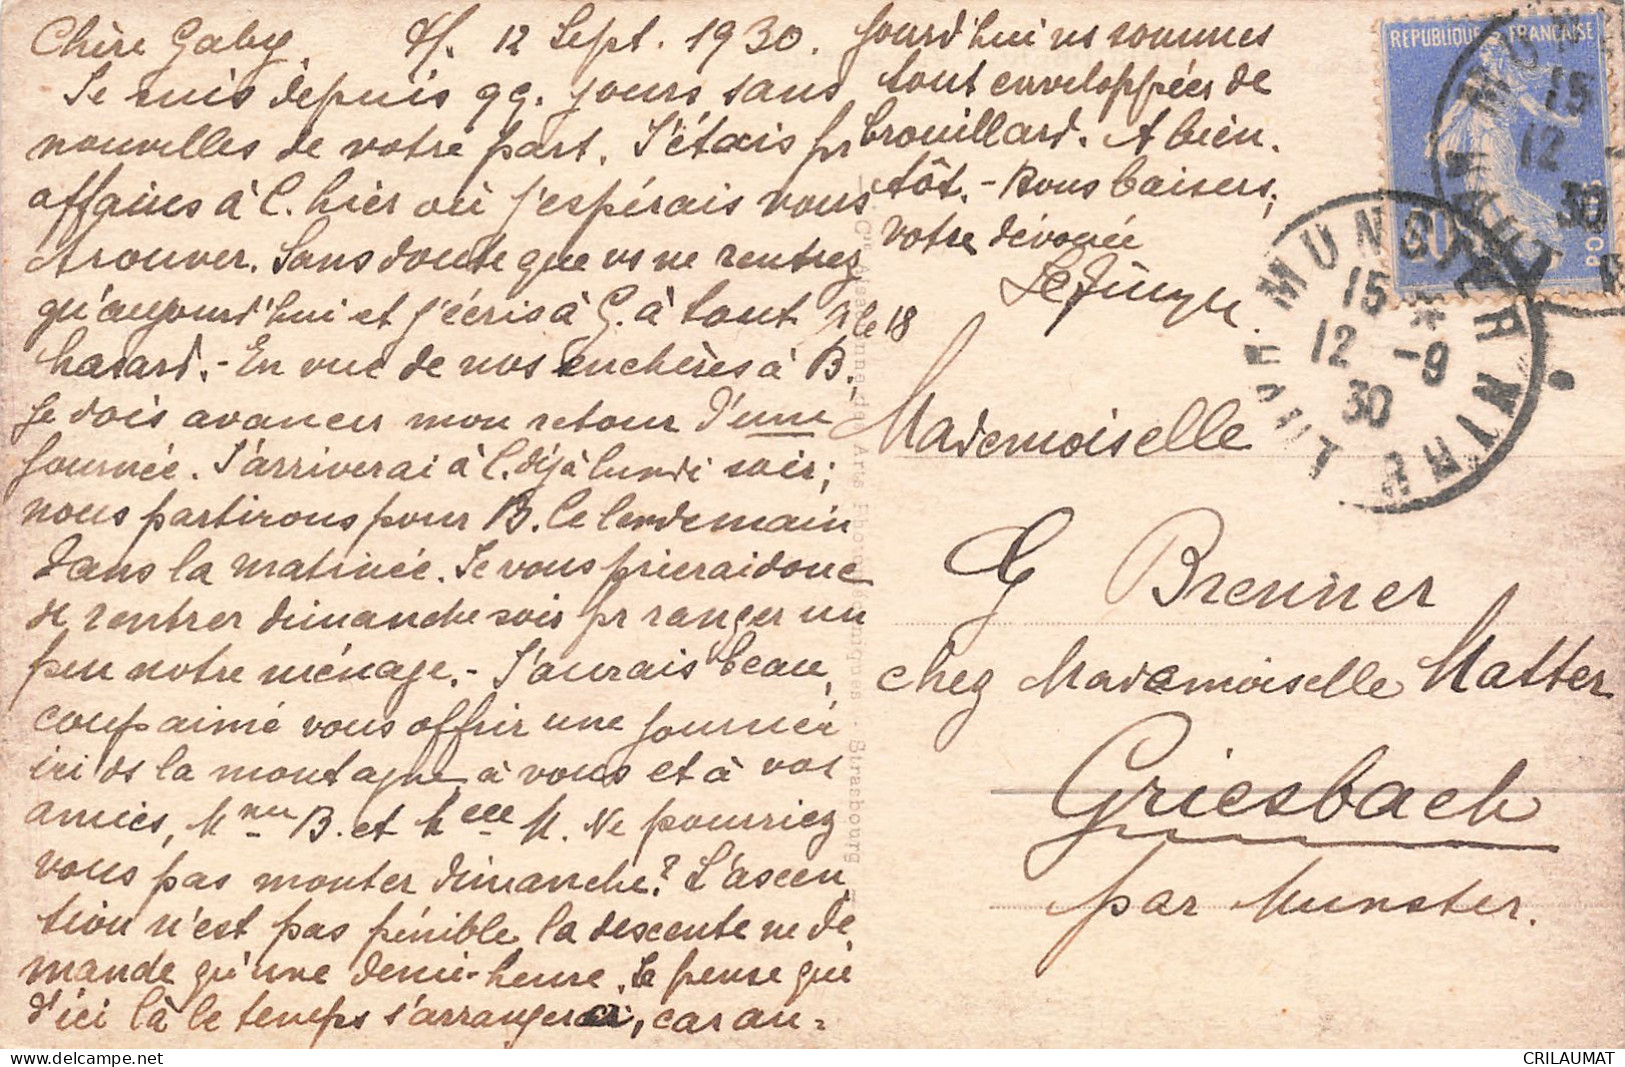 Chère Gaby. H. 12 Sept. 1930.
Je suis depuis qq. jours sans
nouvelles de votre part. J'étais pr
affaires à C. hier où j'espérais vous
trouver. Sans doute que vs ne rentrez
qu'aujourd'hui et j'écris à G. à tout
hasard. - En vue de nos enchères à B. le 18
je dois avancer mon retour d'une
journée. J'arriverai à C. déjà lundi soir;
nous partirons pour B. le lendemain
dans la matinée. Je vous prierai donc
de rentrer dimanche soir pr ranger un
peu notre ménage. - J'aurais beau-
coup aimé vous offrir une journée
ici ds la montagne à vous et à vos
amies, Mme B. et Melle M. Ne pourriez
vous pas monter dimanche? L'ascen
tion n'est pas pénible, la descente ne de
mande qu'une demi-heure. Je pense que
d'ici là le temps s'arrangera, car au=
jourd'hui ns sommes
tout enveloppées de
brouillard. A bien-
tôt. - Bons baisers,
votre dévouée
Mademoiselle
G Brenner
chez Mademoiselle Matter
Griesbach
par Munster.
REPUBLIQUE FRANÇAISE
POSTES
MUNSTER
HT RHIN
15
12 -9
30
MUNSTER
15
12
30
Strasbourg
CRILAUMAT